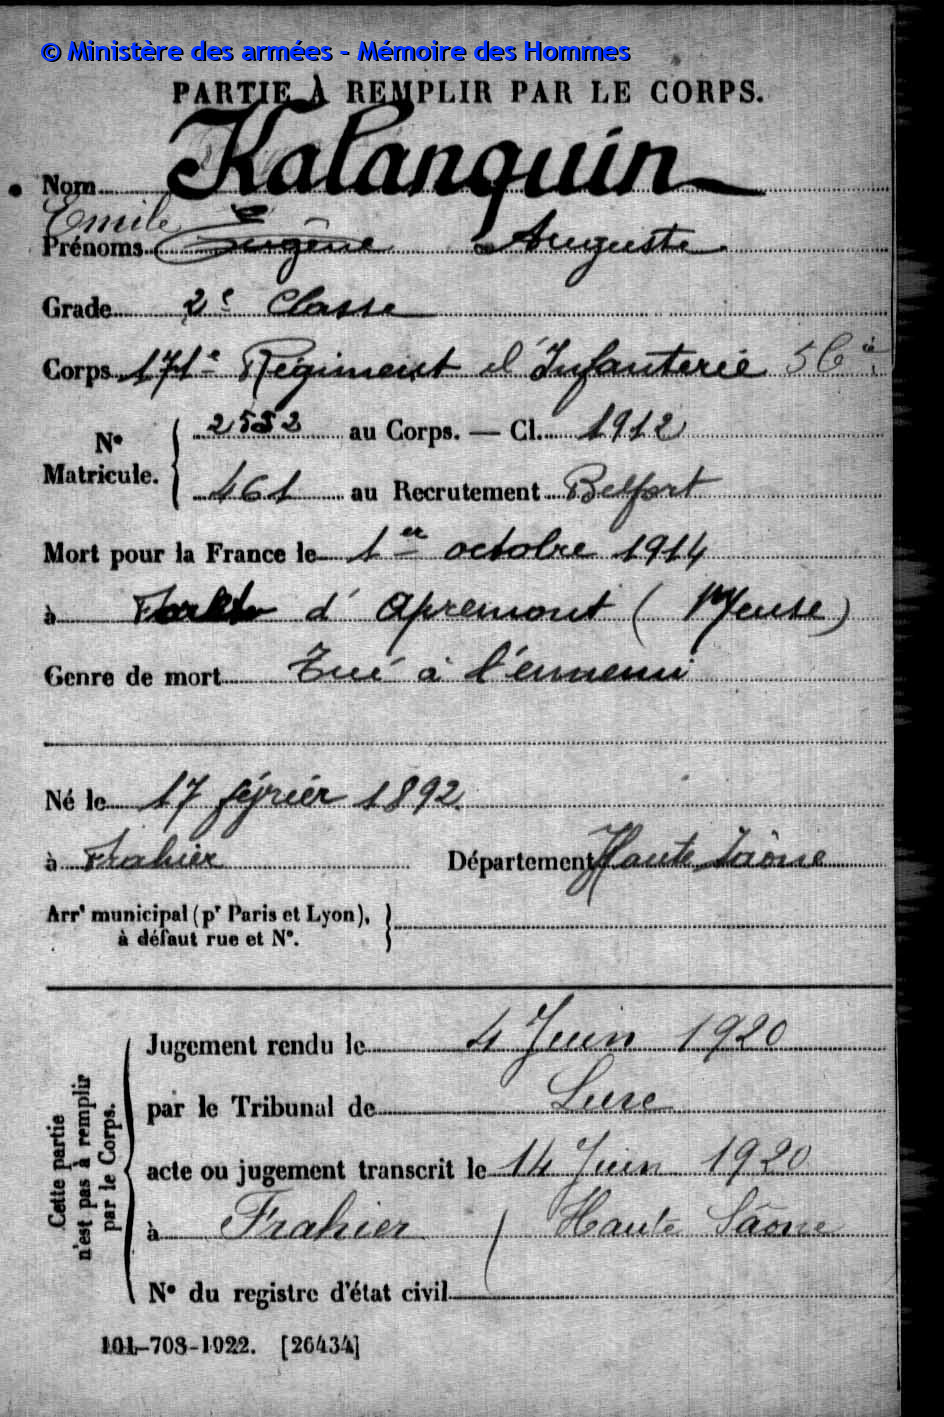 © Ministère des armées - Mémoire des Hommes
PARTIE À REMPLIR PAR LE CORPS.
Nom Kalanquin
Emile
Prénoms Eugène Auguste
Grade 2e Classe
Corps 171e Régiment d'Infanterie 5 Cie
N° Matricule. 2532 au Corps. — Cl. 1912
461 au Recrutement Belfort
Mort pour la France le 1er octobre 1914
à Forêt d'Apremont (Meuse)
Genre de mort Tué à l'ennemi
Né le 17 février 1892
à Frahier Département Haute Saône
Arrt municipal (pr Paris et Lyon),
à défaut rue et N°.
Cette partie
n'est pas à remplir
par le Corps.
Jugement rendu le 4 Juin 1920
par le Tribunal de Lure
acte ou jugement transcrit le 14 Juin 1920
à Frahier (Haute Saône
N° du registre d'état civil
101-708-1922. [26434]